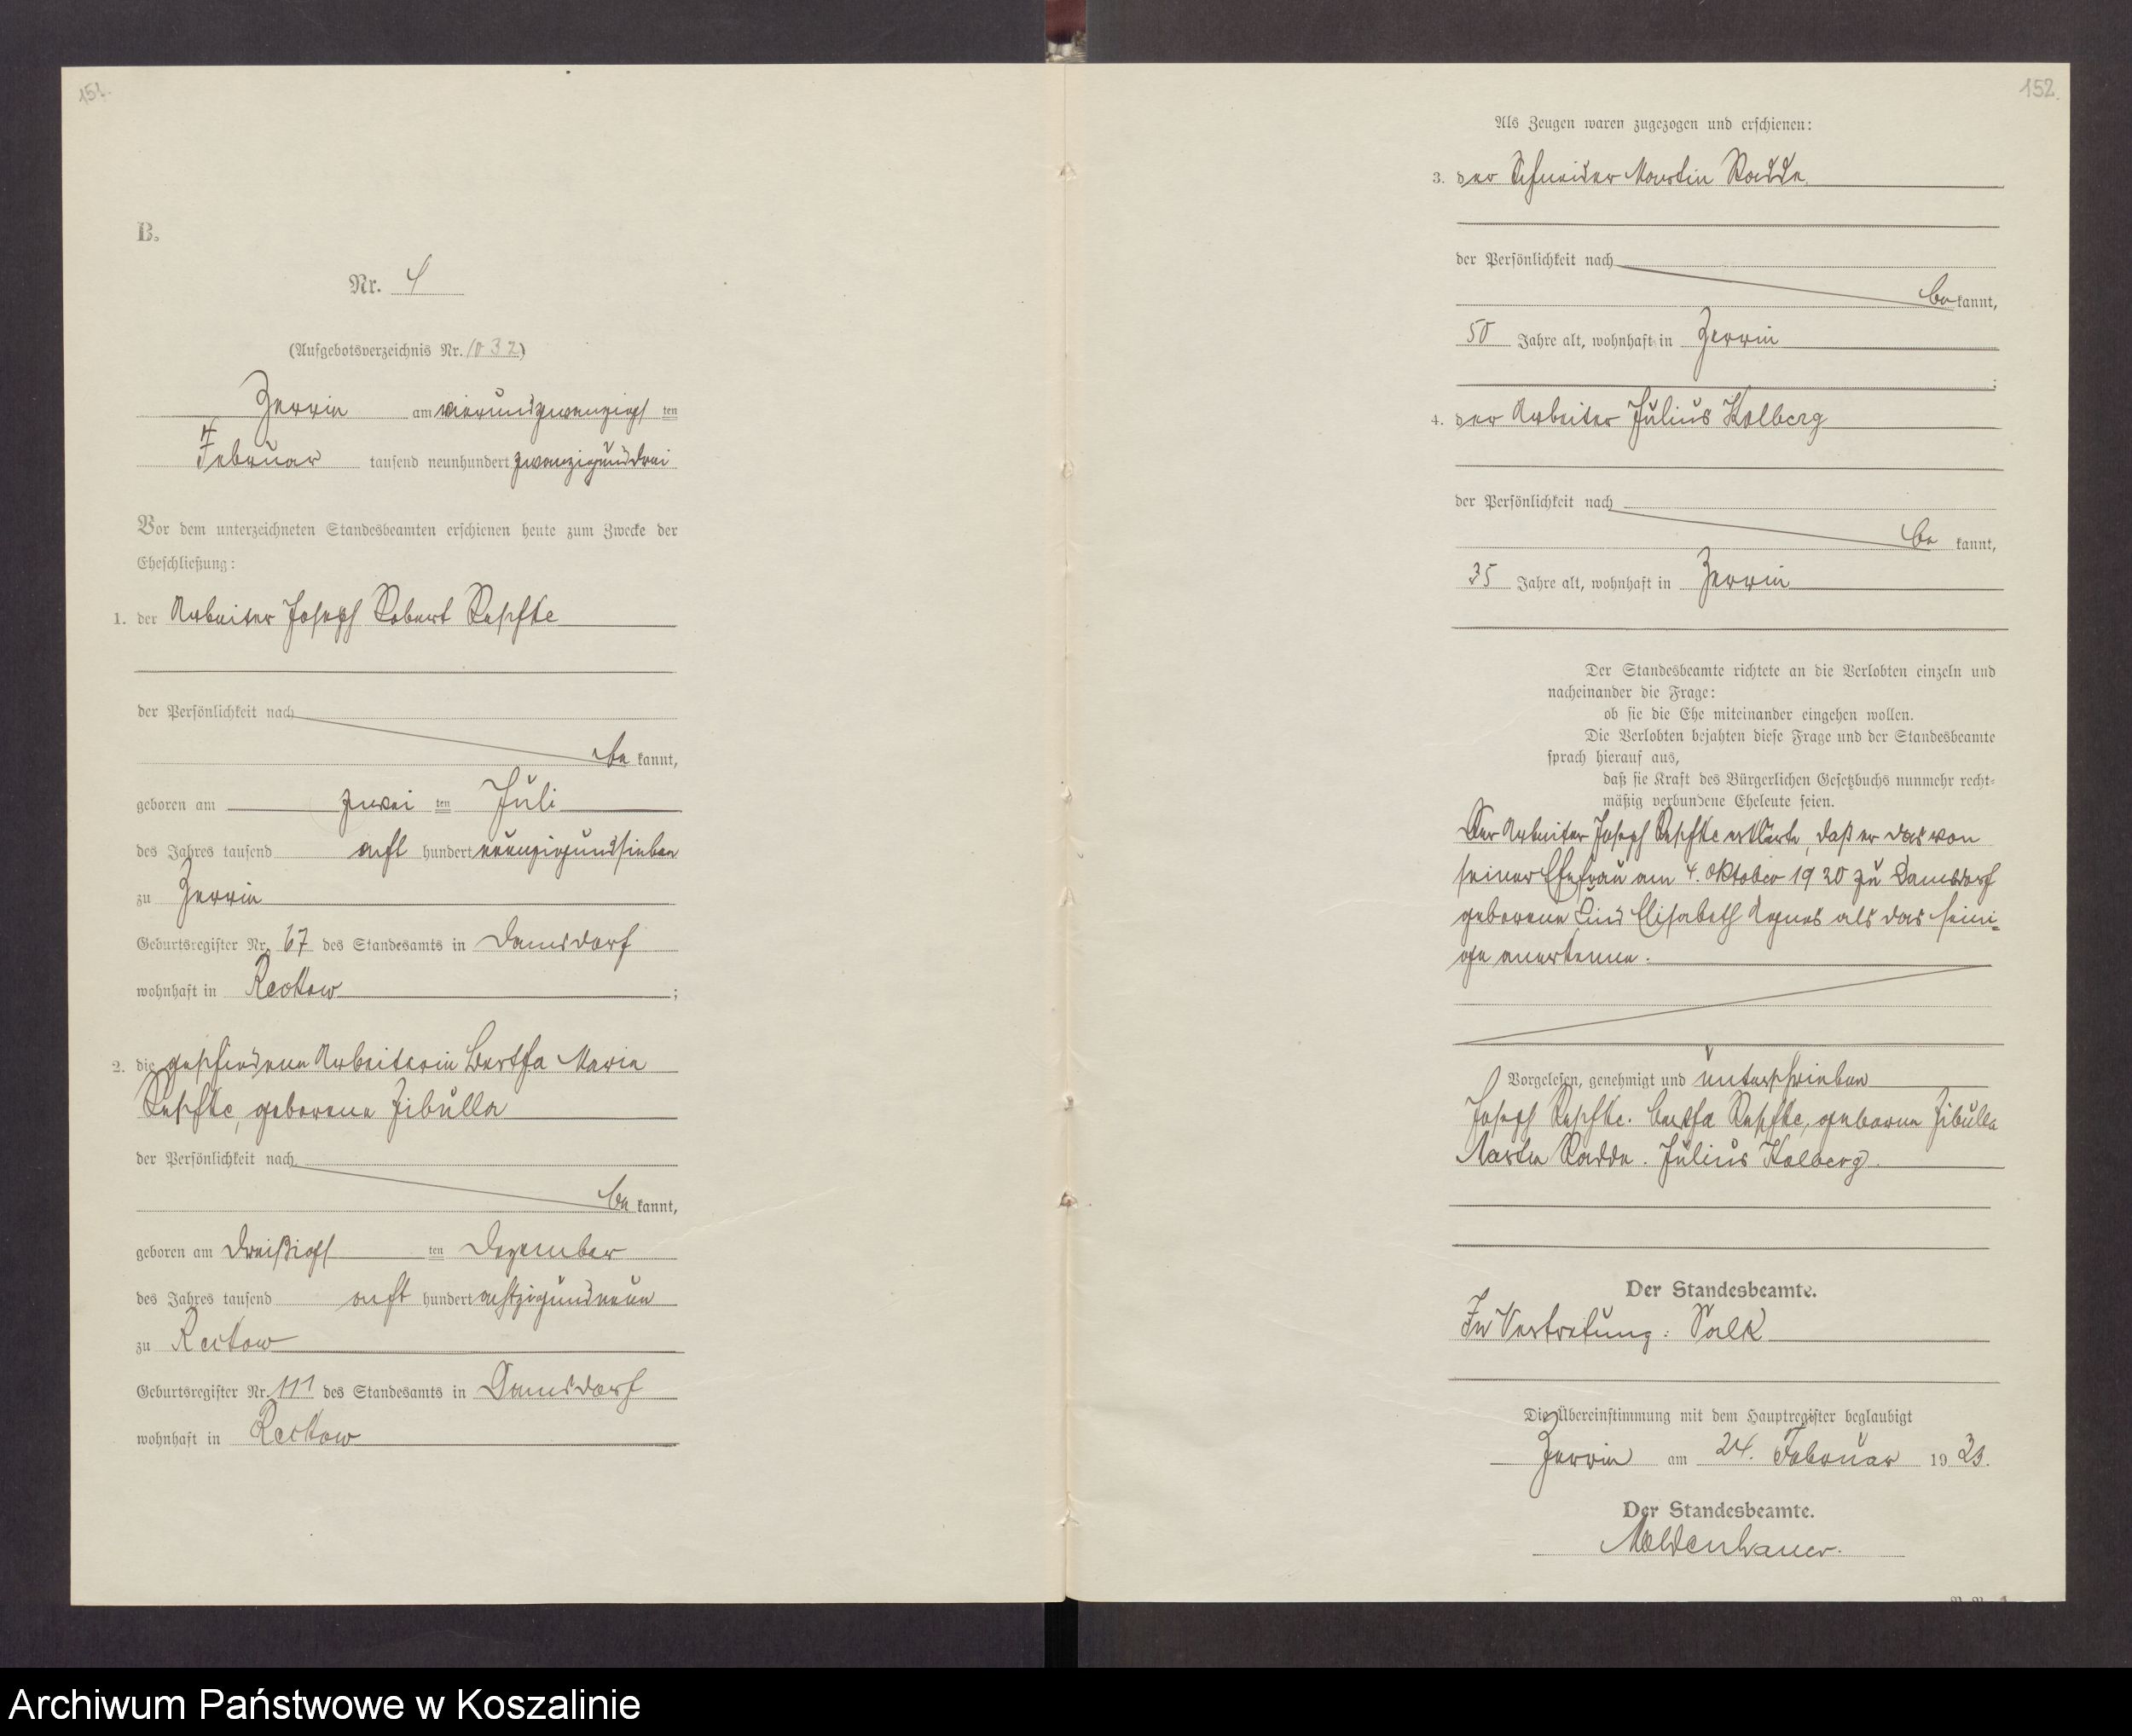 151.
B.
Nr. 4
(Aufgebotsverzeichnis Nr. 1032)
Zerrin am vierundzwanzigsten
Februar tausend neunhundert zwanzigunddrei
Vor dem unterzeichneten Standesbeamten erschienen heute zum Zwecke der
Eheschließung:
1. der Arbeiter Joseph Robert
der Persönlichkeit nach
be kannt,
geboren am zwei ten Juli
des Jahres tausend acht hundert neunzigundsieben
zu Zerrin
Geburtsregister Nr. 67 des Standesamts in Damsdorf
wohnhaft in Reckow ;
2. die geschiedene Arbeiterin Bertha Marie
geborene Zibulla
der Persönlichkeit nach
be kannt,
geboren am dreißigsten Dezember
des Jahres tausend acht hundert achtzigundneun
zu Reckow
Geburtsregister Nr. 111 des Standesamts in Damsdorf
wohnhaft in Reckow
152.
Als Zeugen waren zugezogen und erschienen:
3. der Schneider Martin Radde
der Persönlichkeit nach
be kannt,
50 Jahre alt, wohnhaft in Zerrin
;
4. der Arbeiter Julius Kolberg
der Persönlichkeit nach
be kannt,
35 Jahre alt, wohnhaft in Zerrin
Der Standesbeamte richtete an die Verlobten einzeln und
nacheinander die Frage:
ob sie die Ehe miteinander eingehen wollen.
Die Verlobten bejahten diese Frage und der Standesbeamte
sprach hierauf aus,
daß sie Kraft des Bürgerlichen Gesetzbuchs nunmehr recht-
mäßig verbundene Eheleute seien.
Der Arbeiter Joseph erklärte, daß er das von
seiner Ehefrau am 4. Oktober 1920 zu Damsdorf
geborene Kind Elisabeth Agnes als das seini-
ge anerkenne.
Vorgelesen, genehmigt und unterschrieben
Joseph Bertha geborene Zibulla
Martin Radde. Julius Kolberg.
Der Standesbeamte.
In Vertretung: Valk
Die Übereinstimmung mit dem Hauptregister beglaubigt
Zerrin am 24. Februar 1923.
Der Standesbeamte.
Moldenhauer.
Archiwum Państwowe w Koszalinie